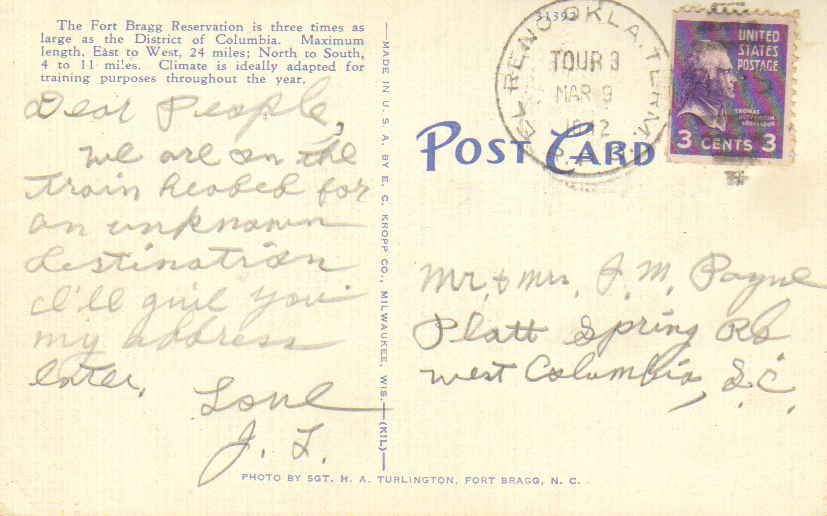 The Fort Bragg Reservation is three times as
large as the District of Columbia. Maximum
length, East to West, 24 miles; North to South,
4 to 11 miles. Climate is ideally adapted for
training purposes throughout the year.
Dear People,
We are on the
train headed for
an unknown
destination
I'll give you
my address
later.
Love
J. T.
MADE IN U. S. A. BY E. C. KROPP CO., MILWAUKEE, WIS. (KIL)
31393
EL RENO OKLA. TERM.
TOUR 3
MAR 9
UNITED
STATES
POSTAGE
THOMAS
JEFFERSON
3 CENTS 3
POST CARD
Mr. & Mrs. J. M. Payne
Platt Spring Rd
West Columbia, S.C.
PHOTO BY SGT. H. A. TURLINGTON, FORT BRAGG, N. C.